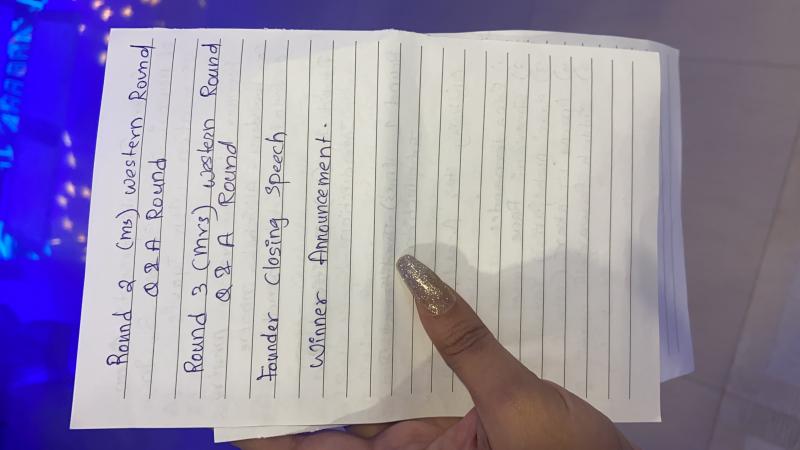 Round 2 (ms) western Round
Q & A Round
Round 3 (mrs) western Round
Q & A Round
Founder Closing Speech
Winner Announcement.